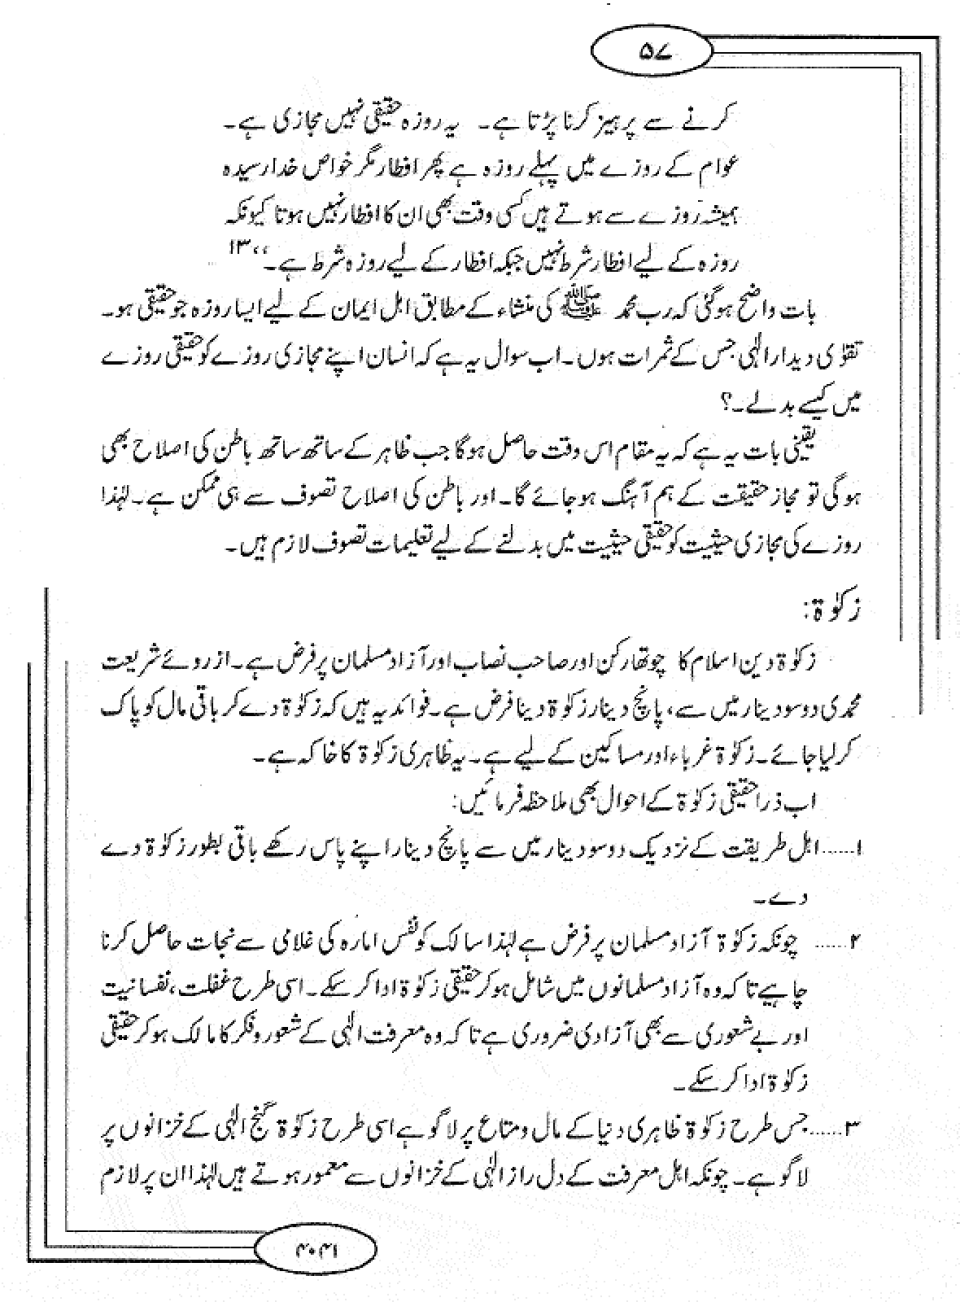 ۵۷
کرنے سے پرہیز کرنا پڑتا ہے۔ یہ روزہ حقیقی نہیں مجازی ہے۔
عوام کے روزے میں پہلے روزہ ہے پھر افطار مگر خواص خدا رسیدہ
ہمیشہ روزے سے ہوتے ہیں کسی وقت بھی ان کا افطار نہیں ہوتا کیونکہ
روزہ کے لیے افطار شرط نہیں جبکہ افطار کے لیے روزہ شرط ہے۔“ ۱۳
بات واضح ہوگئی کہ رب محمد ﷺ کی منشاء کے مطابق اہل ایمان کے لیے ایسا روزہ جو حقیقی ہو۔
تقوٰی دیدار الٰہی جس کے ثمرات ہوں۔ اب سوال یہ ہے کہ انسان اپنے مجازی روزے کو حقیقی روزے
میں کیسے بدلے۔؟
یقینی بات یہ ہے کہ یہ مقام اس وقت حاصل ہوگا جب ظاہر کے ساتھ ساتھ باطن کی اصلاح بھی
ہوگی تو مجاز حقیقت کے ہم آہنگ ہو جائے گا۔ اور باطن کی اصلاح تصوف سے ہی ممکن ہے۔ لہٰذا
روزے کی مجازی حیثیت کو حقیقی حیثیت میں بدلنے کے لیے تعلیمات تصوف لازم ہیں۔
زکوٰۃ:
زکوٰۃ دین اسلام کا چوتھا رکن اور صاحب نصاب اور آزاد مسلمان پر فرض ہے۔ از روئے شریعت
محمدی دو سو دینار میں سے، پانچ دینار زکوٰۃ دینا فرض ہے۔ فوائد یہ ہیں کہ زکوٰۃ دے کر باقی مال کو پاک
کر لیا جائے۔ زکوٰۃ غرباء اور مساکین کے لیے ہے۔ یہ ظاہری زکوٰۃ کا خاکہ ہے۔
اب ذرا حقیقی زکوٰۃ کے احوال بھی ملاحظہ فرمائیں:
۱..... اہل طریقت کے نزدیک دو سو دینار میں سے پانچ دینار اپنے پاس رکھے باقی بطور زکوٰۃ دے
دے۔
۲..... چونکہ زکوٰۃ آزاد مسلمان پر فرض ہے لہٰذا سالک کو نفس امارہ کی غلامی سے نجات حاصل کرنا
چاہیے تا کہ وہ آزاد مسلمانوں میں شامل ہو کر حقیقی زکوٰۃ ادا کر سکے۔ اسی طرح غفلت، نفسانیت
اور بے شعوری سے بھی آزادی ضروری ہے تا کہ وہ معرفت الٰہی کے شعور و فکر کا مالک ہو کر حقیقی
زکوٰۃ ادا کر سکے۔
۳..... جس طرح زکوٰۃ ظاہری دنیا کے مال و متاع پر لاگو ہے اسی طرح زکوٰۃ گنج الٰہی کے خزانوں پر
لاگو ہے۔ چونکہ اہل معرفت کے دل راز الٰہی کے خزانوں سے معمور ہوتے ہیں لہٰذا ان پر لازم
۴۰۴۱